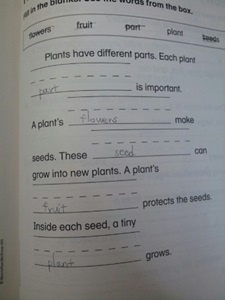 in the blanks. Use the words from the box.
flowers fruit part plant seeds
Plants have different parts. Each plant
part is important.
A plant's flowers make
seeds. These seed can
grow into new plants. A plant's
fruit protects the seeds.
Inside each seed, a tiny
plant grows.